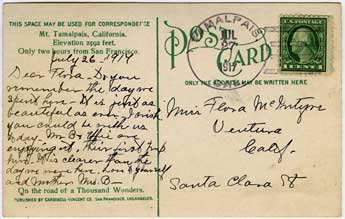 THIS SPACE MAY BE USED FOR CORRESPONDENCE
Mt. Tamalpais, California.
Elevation 2592 feet.
Only two hours from San Francisco.
July 26 - 1914
Dear Flora - Do you
remember the day we
spent here. It is just as
beautiful as ever. I wish
you could be with us
today. Mr B & Effie are
enjoying it, their first trip
here. It is clearer than the
day we were here. Love to yourself
and Mother Mrs. B
On the road of a Thousand Wonders.
PUBLISHED BY CARDINELL-VINCENT CO. SAN FRANCISCO, LOS ANGELES.
POST CARD
TAMALPAIS
JUL
27
CAL.
ONLY THE ADDRESS MAY BE WRITTEN HERE
Miss Flora McIntyre
Ventura
Calif.
Santa Clara St